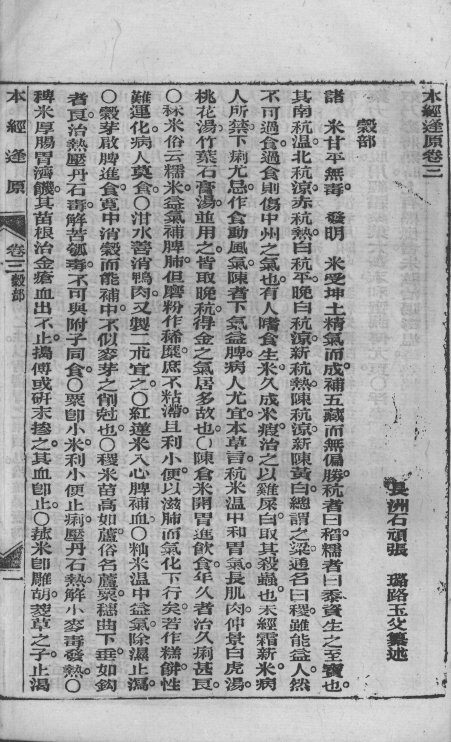 本經逢原卷三
長洲石頑張　璐路玉父纂述
穀部
諸　米甘平無毒　發明　米受坤土精氣而成補五藏而無偏勝秔者曰稻糯者曰黍資生之至寶也
其南秔溫北秔涼赤秔熱白秔平晚白秔涼新秔熱陳秔涼新陳黃白總謂之粱通名曰稷雖能益人然
不可過食過食則傷中州之氣也有人嗜食生米久成米瘕治之以雞屎白取其殺蟲也未經霜新米病
人所禁下痢尤忌作食動風氣陳者下氣益脾病人尤宜本草言秔米溫中和胃氣長肌肉仲景白虎湯
桃花湯竹葉石膏湯並用之皆取晚秔得金之氣居多故也○陳倉米開胃進飲食年久者治久痢甚良
○秫米俗云糯米益氣補脾肺但磨粉作稀糜庶不粘滯且利小便以滋肺而氣化下行矣若作糕餅性
難運化病人莫食○泔水善消鴨肉又製二朮宜之○紅蓮米入心脾補血○籼米溫中益氣除濕止瀉
○穀芽啟脾進食寬中消穀而能補中不似麥芽之削尅也○稷米苗高如蘆俗名蘆粟穗曲下垂如鈎
者良治熱壓丹石毒解苦瓠毒不可與附子同食○粟卽小米利小便止痢壓丹石熱解小麥毒發熱○
稗米厚腸胃濟饑其苗根治金瘡血出不止搗傅或研末摻之其血卽止○菰米卽雕胡葑草之子止渴
本經逢原　卷三　穀部　一